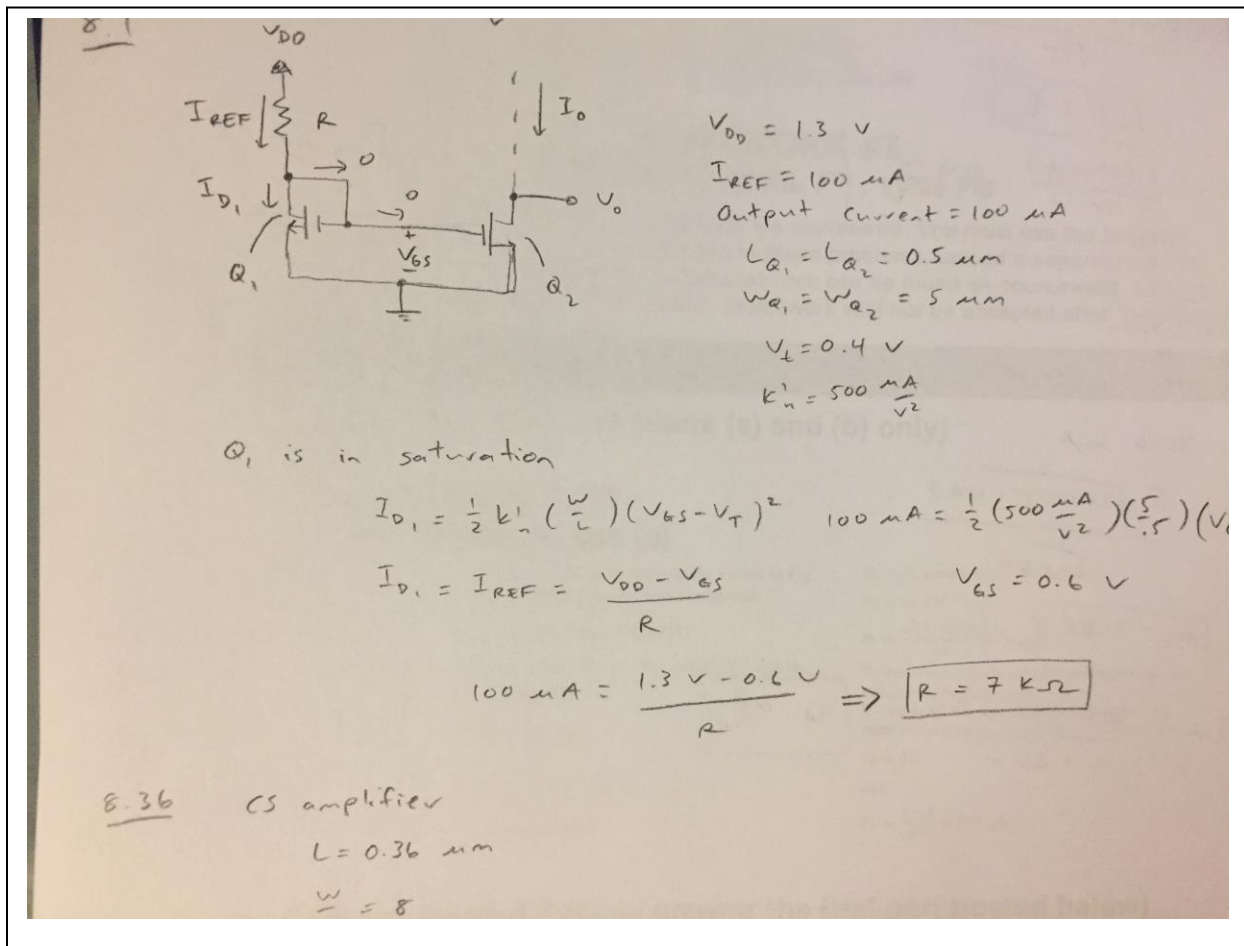 8.1
V_DD
I_REF R I_0
0
I_D1 0 V_0
+
V_GS
-
Q_1 Q_2
V_DD = 1.3 V
I_REF = 100 μA
Output current = 100 μA
L_Q1 = L_Q2 = 0.5 μm
W_Q1 = W_Q2 = 5 μm
V_t = 0.4 V
k'_n = 500 μA/V²
(a) and (b) only)
Q_1 is in saturation
I_D1 = 1/2 k'_n (W/L)(V_GS - V_T)² 100 μA = 1/2 (500 μA/V²)(5/.5)(V
I_D1 = I_REF = (V_DD - V_GS)/R V_GS = 0.6 V
100 μA = (1.3 V - 0.6 V)/R => R = 7 kΩ
8.36 CS amplifier
L = 0.36 μm
W = 8